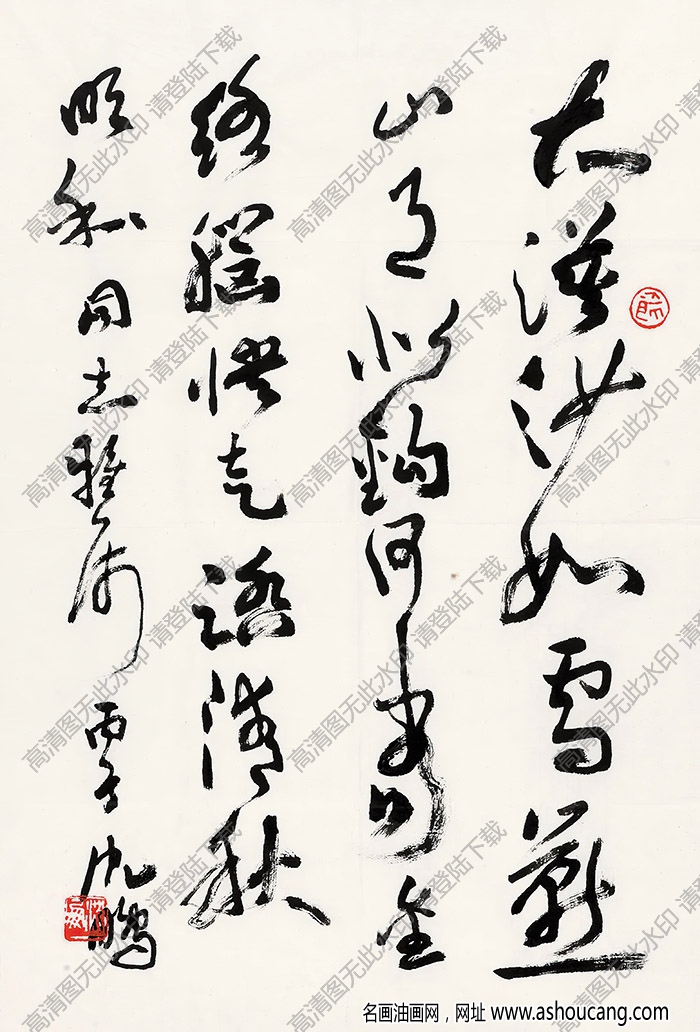 大漠沙如雪燕
山月似鉤何當金
絡腦快走踏清秋
和同志雅屬 丙子 沈鵬
高清图无此水印 请登陆下载
名画油画网，网址 www.ashoucang.com